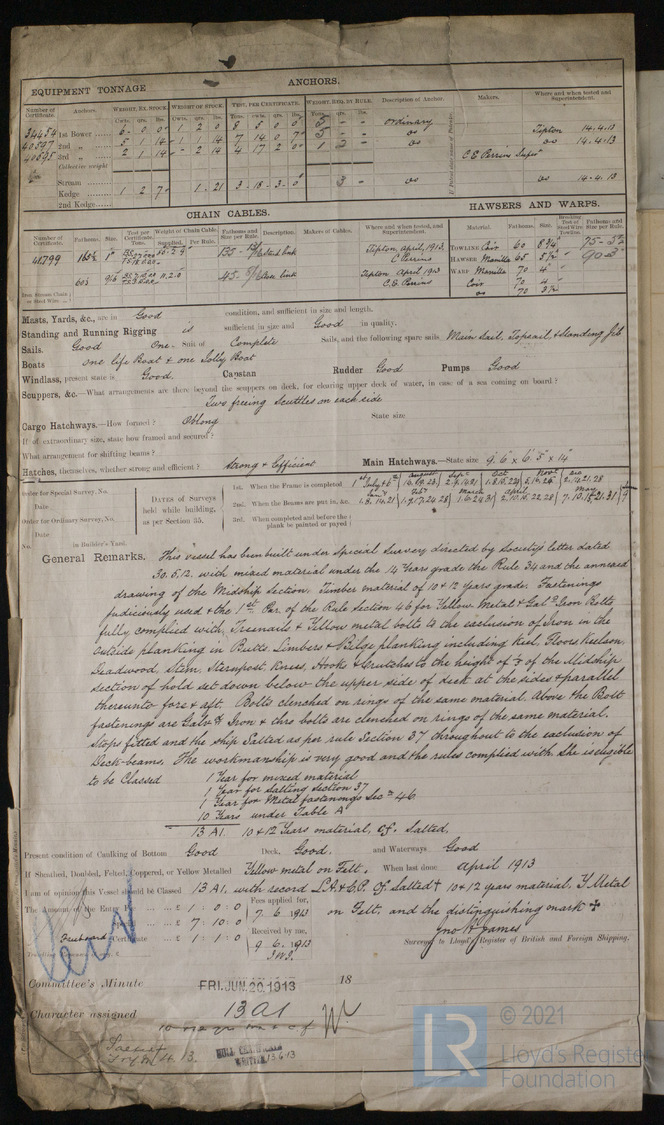 EQUIPMENT TONNAGE
ANCHORS.
Number of Certificate. Anchors. WEIGHT, EX. STOCK. WEIGHT OF STOCK. TEST, PER CERTIFICATE. WEIGHT, REQ. BY RULE. Description of Anchor. Makers. Where and when tested and Superintendent.
34454 1st Bower 6 - 0 0 1 2 0 8 5 0 0 5 - - Ordinary Tipton 14.4.13
40597 2nd 5 1 14 1 1 14 7 14 0 7 5 - - do do 14.4.13
40595 3rd 2 1 14 - 2 14 4 17 2 0 C E Perrins Supt
Collective weight
Stream
Kedge 1 2 7 1 21 3 - 18 - 3 - 0 3 - do do 14.4.13
2nd Kedge
CHAIN CABLES.
HAWSERS AND WARPS.
Number of Certificate. Fathoms. Size. Test per Certificate. Tons. Weight of Chain Cable. Supplied. Per Rule. Fathoms and Size per Rule. Description. Makers of Cables. Where and when tested, and Superintendent. Material. Fathoms. Size. Fathoms and Size per Rule.
41799 165½ 1" 135 Stud link Tipton, April, 1913. C Perrins
60 9/16 11.2.0 45 link Tipton April 1913 C. E. Perrins
TOWLINE Coir 60 8¾ 75 -
HAWSER Manilla 65 5½ 90 - 3"
WARP Manilla 70 4"
Coir 70 4"
do 70 3½
Masts, Yards, &c., are in Good condition, and sufficient in size and length.
Standing and Running Rigging is sufficient in size and Good in quality.
Sails. Good One Suit of Complete Sails, and the following spare sails Main Sail, Topsail, & Standing Jib
Boats one life Boat & one Jolly Boat
Windlass, present state is Good Capstan Rudder Good Pumps Good
Scuppers, &c.—What arrangements are there beyond the scuppers on deck, for clearing upper deck of water, in case of a sea coming on board?
Two freeing Scuttles on each side
Cargo Hatchways.—How formed? Oblong State size
If of extraordinary size, state how framed and secured?
What arrangement for shifting beams?
Hatches, themselves, whether strong and efficient? Strong & Efficient Main Hatchways.—State size 9'.6" x 6'.5" x 14"
Order for Special Survey, No.
Date
Order for Ordinary Survey, No.
Date
No. in Builder's Yard.
DATES of Surveys held while building, as per Section 35.
1st. When the Frame is completed
2nd. When the Beams are put in, &c.
3rd. When completed and before the plank be painted or payed
General Remarks. This vessel has been built under Special Survey directed by Society's letter dated
30.5.12. with mixed material under the 14 Years grade the Rule 34 and the annexed
drawing of the Midship Section. Timber material of 10 & 12 Years grade. Fastenings
judiciously used & the 1st Par. of the Rule section 46 for Yellow Metal & Galvd Iron Bolts
fully complied with, Treenails & Yellow metal bolts to the exclusion of Iron in the
outside planking in Butts Limbers & Bilge planking including Keel, Floors Keelson,
Deadwood, Stem, Sternpost, Knees, Hooks & Crutches to the height of ⅗ of the Midship
section of hold set down below the upper side of deck at the sides & parallel
thereunto fore & aft. Bolts clenched on rings of the same material. Above the Bolt
fastenings are Galvd Iron & thro bolts are clenched on rings of the same material.
Stops fitted and the ship Salted as per rule Section 37 throughout to the exclusion of
Deck-beams. The workmanship is very good and the rules complied with. She is eligible
to be Classed 1 Year for mixed material
1 Year for Salting Section 37
1 Year for Metal fastenings Secn 46.
10 Years under Table A
13 A1. 10 & 12 Years material, cf. Salted,
Present condition of Caulking of Bottom Good Deck, Good. and Waterways Good
If Sheathed, Doubled, Felted, Coppered, or Yellow Metalled Yellow metal on Felt. When last done April 1913
I am of opinion this Vessel should be Classed 13 A1. with record L.A.&C.P. cf. Salted & 10 & 12 years material, Y Metal
on Felt, and the distinguishing mark ✠
The Amount of the Entry Fee £ 1 : 0 : 0
£ 7 : 10 : 0
Freeboard Certificate £ 1 : 1 : 0
Fees applied for, 7. 6. 1913
Received by me, 9. 6. 1913
Jno H James
Surveyor to Lloyd's Register of British and Foreign Shipping.
Committee's Minute FRI. JUN. 20. 1913 18
Character assigned 13 A1
HULL CERTIFICATE WRITTEN 23.6.13
LR
© 2021
Lloyd's Register Foundation